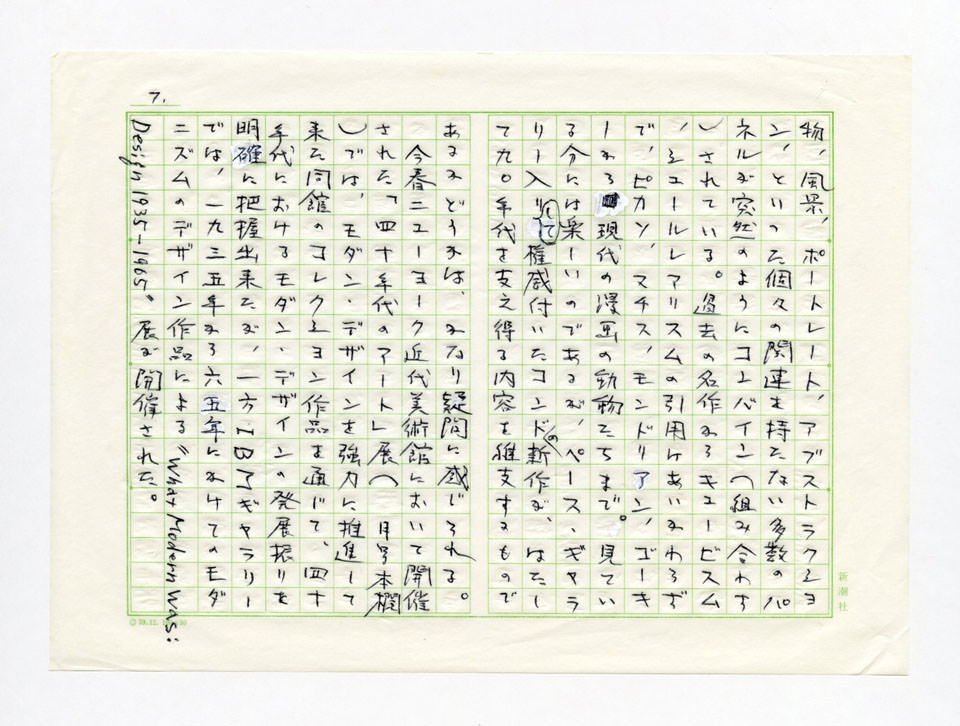 7.
物、風景、ポートレート、アブストラクショ
ン、といった個々の関連を持たない多数のパ
ネルが突然のようにコンバイン(組み合わす
)されている。過去の名作からキュービズム
、シュールレアリスムの引用はあいかわらず
で、ピカソ、マチス、モンドリアン、ゴーキ
ーから現代の漫画の動物たちまで。見てい
る分には楽しいのであるが、ペース・ギャラ
リー入りして権威付いたコンドの新作が、はたし
て九〇年代を支え得る内容を維支するもので
あるかどうかは、かなり疑問に感じられる。
今春ニューヨーク近代美術館において開催
された「四十年代のアート」展(　月号本欄
)では、モダン・デザインを強力に推進して
来た同館のコレクション作品を通じて、四十
年代におけるモダン・デザインの発展振りを
明確に把握出来たが、一方IBMギャラリー
では、一九三五年から六五年にかけてのモダ
ニズムのデザイン作品による“What Modern Was:
Design 1935-1965”展が開催された。
新潮社